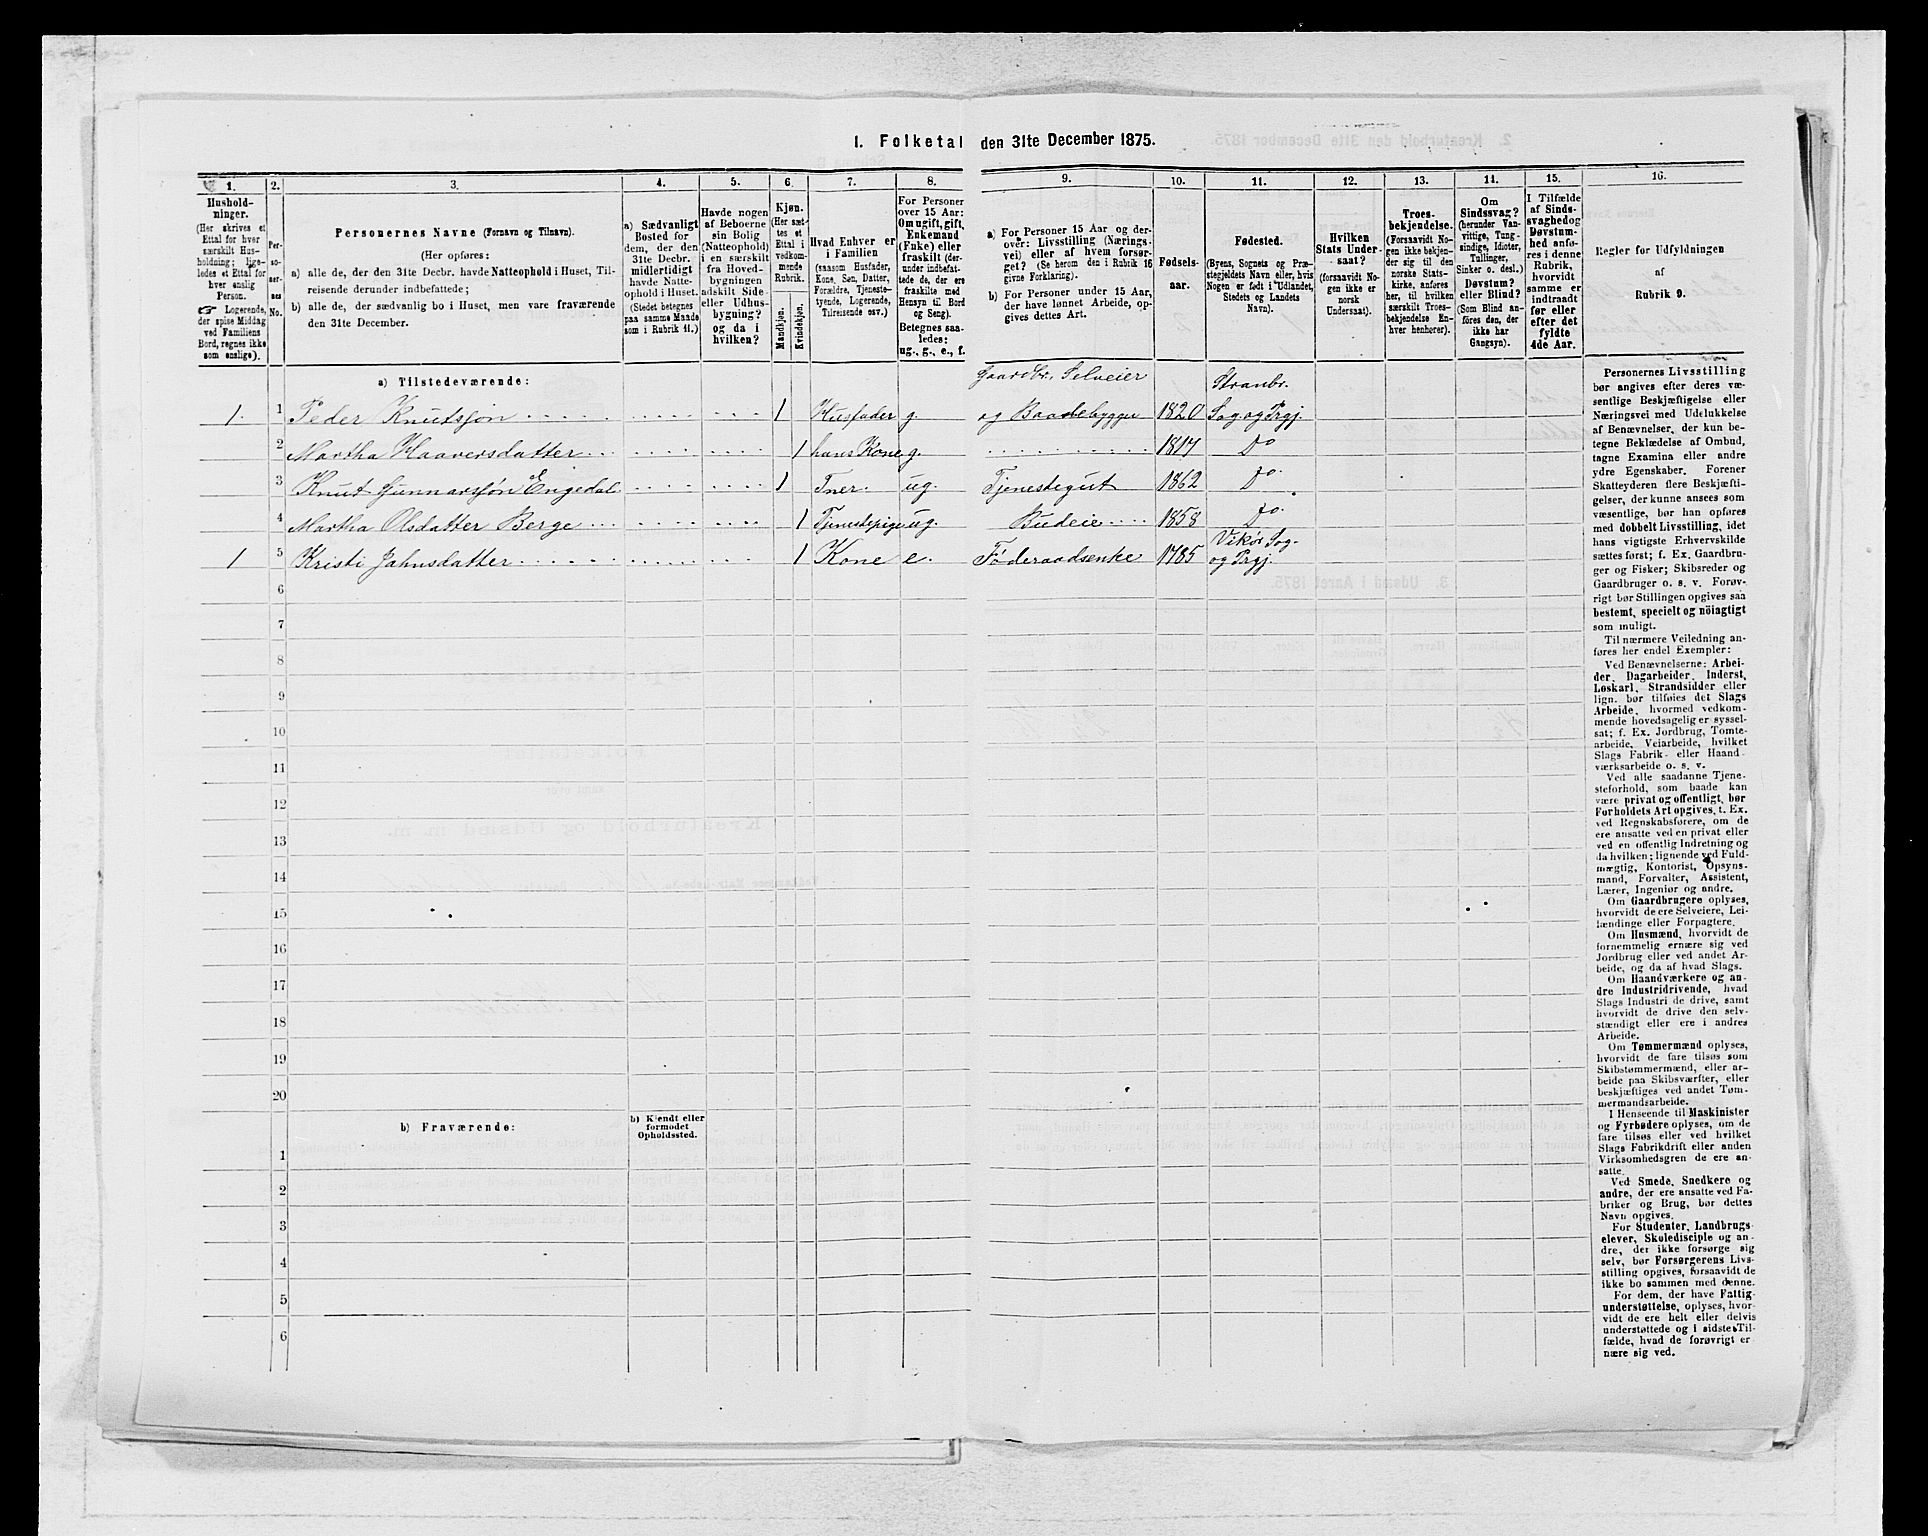 1. Folketal den 31te December 1875.
1. 2. 3. 4. 5. 6. 7. 8. 9. 10. 11. 12. 13. 14. 15. 16.
Hushold-
ninger.
(Her skrives et
Ettal for hver
særskilt Hus-
holdning; lige-
ledes et Ettal for
hver enslig
Person.
☞ Logerende,
der spise Middag
ved Familiens
Bord, regnes ikke
som enslige).
Per-
so-
ner-
nes
No.
Personernes Navne (Fornavn og Tilnavn).
(Her opføres:
a) alle de, der den 31te Decbr. havde Natteophold i Huset, Til-
reisende derunder indbefattede;
b) alle de, der sædvanlig bo i Huset, men vare fraværende
den 31te December.
a) Sædvanligt
Bosted for
dem, der den
31te Decbr.
midlertidigt
havde Natte-
ophold i Huset.
(Stedet betegnes
paa samme Maade
som i Rubrik 11.)
Havde nogen
af Beboerne
sin Bolig
(Natteophold)
i en særskilt
fra Hoved-
bygningen
adskilt Side-
eller Udhus-
bygning?
og da i
hvilken?
Kjøn.
(Her sæt-
tes et
Ettal i
vedkom-
mende
Rubrik.
Mandkjøn.
Kvindekjøn.
Hvad Enhver er
i Familien
(saasom Husfader,
Kone, Søn, Datter,
Forældre, Tjeneste-
tyende, Logerende,
Tilreisende osv.)
For Personer
over 15 Aar:
Om ugift, gift,
Enkemand
(Enke) eller
fraskilt (der-
under indbefat-
tede de, der ere
fraskilte med
Hensyn til Bord
og Seng).
Betegnes saa-
ledes:
ug., g., e., f.
a) For Personer 15 Aar og der-
over: Livsstilling (Nærings-
vei) eller af hvem forsør-
get? (Se herom den i Rubrik 16
givne Forklaring).
b) For Personer under 15 Aar,
der have lønnet Arbeide, op-
gives dettes Art.
Fødsels-
aar.
Fødested.
(Byens, Sognets og Præ-
stegjeldets Navn eller, hvis
Nogen er født i Udlandet,
Stedets og Landets
Navn).
Hvilken
Stats Under-
saat?
(forsaavidt No-
gen ikke er
norsk
Undersaat).
Troes-
bekjendelse.
(Forsaavidt No-
gen ikke bekjen-
der sig til den
norske Stats-
kirke, anføres
her, til hvilken
særskilt Troes-
bekjendelse En-
hver henhører).
Om
Sindssvag?
(herunder Van-
vittige, Tung-
sindige, Idioter,
Tullinger,
Sinker o. desl.)
Døvstum?
eller Blind?
(Som Blind an-
føres den, der
ikke har
Gangsyn).
I Tilfælde
af Sinds-
svaghed og
Døvstum-
hed anfø-
res i denne
Rubrik,
hvorvidt
samme er
indtraadt
før eller
efter det
fyldte
4de Aar.
Regler for Udfyldningen
af
Rubrik 9.
a) Tilstedeværende:
Gaardbr. Selveier Stranbr.
1. 1 Peder Knutsjøn 1 Husfader g. og Baadebygger 1820 Sog. og Prgj.
2 Martha Haaversdatter 1 hans Kone g. 1817 Do
3 Knut Gunnarsjøn Engedal 1 Tner. ug. Tjenestegut 1862 Do.
4 Martha Olsdatter Berge 1 Tjenestepige ug. Budeie 1858 Do.
Vikør Sog-
1 5 Kristi Jahnsdatter 1 Kone e. Føderaadsenke 1785 og Prgj.
6
7
8
9
10
11
12
13
14
15
16
17
18
19
20
b) Fraværende:
b) Kjendt eller
formodet
Opholdssted.
1
2
3
4
5
6
Personernes Livsstilling
bør angives efter deres væ-
sentlige Beskjæftigelse eller
Næringsvei med Udelukkelse
af Benævnelser, der kun be-
tegne Beklædelse af Ombud,
tagne Examina eller andre
ydre Egenskaber. Forener
Skatteyderen flere Beskjæfti-
gelser, der kunne ansees som
væsentlige, bør han opføres
med dobbelt Livsstilling, idet
hans vigtigste Erhvervskilde
sættes først; f. Ex. Gaardbru-
ger og Fisker; Skibsreder og
Gaardbruger o. s. v. Forøv-
rigt bør Stillingen opgives saa
bestemt, specielt og nöiagtigt
som muligt.
Til nærmere Veiledning an-
føres her endel Exempler:
Ved Benævnelserne: Arbei-
der, Dagarbeider, Inderst,
Løskarl, Strandsidder eller
lign. bør tilføies det Slags
Arbeide, hvormed vedkom-
mende hovedsagelig er syssel-
sat; f. Ex. Jordbrug, Tomte-
arbeide, Veiarbeide, hvilket
Slags Fabrik- eller Haand-
værksarbeide o. s. v.
Ved alle saadanne Tjene-
steforhold, som baade kan
være privat og offentligt, bør
Forholdets Art opgives, t. Ex.
ved Regnskabsførere, om de
ere ansatte ved en privat eller
ved en offentlig Indretning og
da hvilken; lignende ved Fuld-
mægtig, Kontorist, Opsyns-
mand, Forvalter, Assistent,
Lærer, Ingeniør og andre.
Om Gaardbrugere oplyses,
hvorvidt de ere Selveiere, Lei-
lændinge eller Forpagtere.
Om Husmænd, hvorvidt de
fornemmelig ernære sig ved
Jordbrug eller ved andet Ar-
beide, og da af hvad Slags.
Om Haandværkere og an-
dre Industridrivende, hvad
Slags Industri de drive, samt
hvorvidt de drive den selv-
stændigt eller ere i andres
Arbeide.
Om Tømmermænd oplyses,
hvorvidt de fare tilsøs som
Skibstømmermænd, eller ar-
beide paa Skibsværfter, eller
beskjæftiges ved andet Tøm-
mermandsarbeide.
I Henseende til Maskinister
og Fyrbødere oplyses, om de
fare tilsøs eller ved hvilket
Slags Fabrikdrift eller anden
Virksomhedsgren de ere an-
satte.
Ved Smede, Snedkere og
andre, der ere ansatte ved Fa-
briker og Brug, bør dettes
Navn opgives.
For Studenter, Landbrugs-
elever, Skoledisciple og an-
dre, der ikke forsørge sig
selv, bør Forsørgerens Livs-
stilling opgives, forsaavidt de
ikke bo sammen med denne.
For dem, der have Fattig-
understøttelse, oplyses, hvor-
vidt de ere helt eller delvis
understøttede og i sidste Til-
fælde, hvad de forøvrigt er-
nære sig ved.